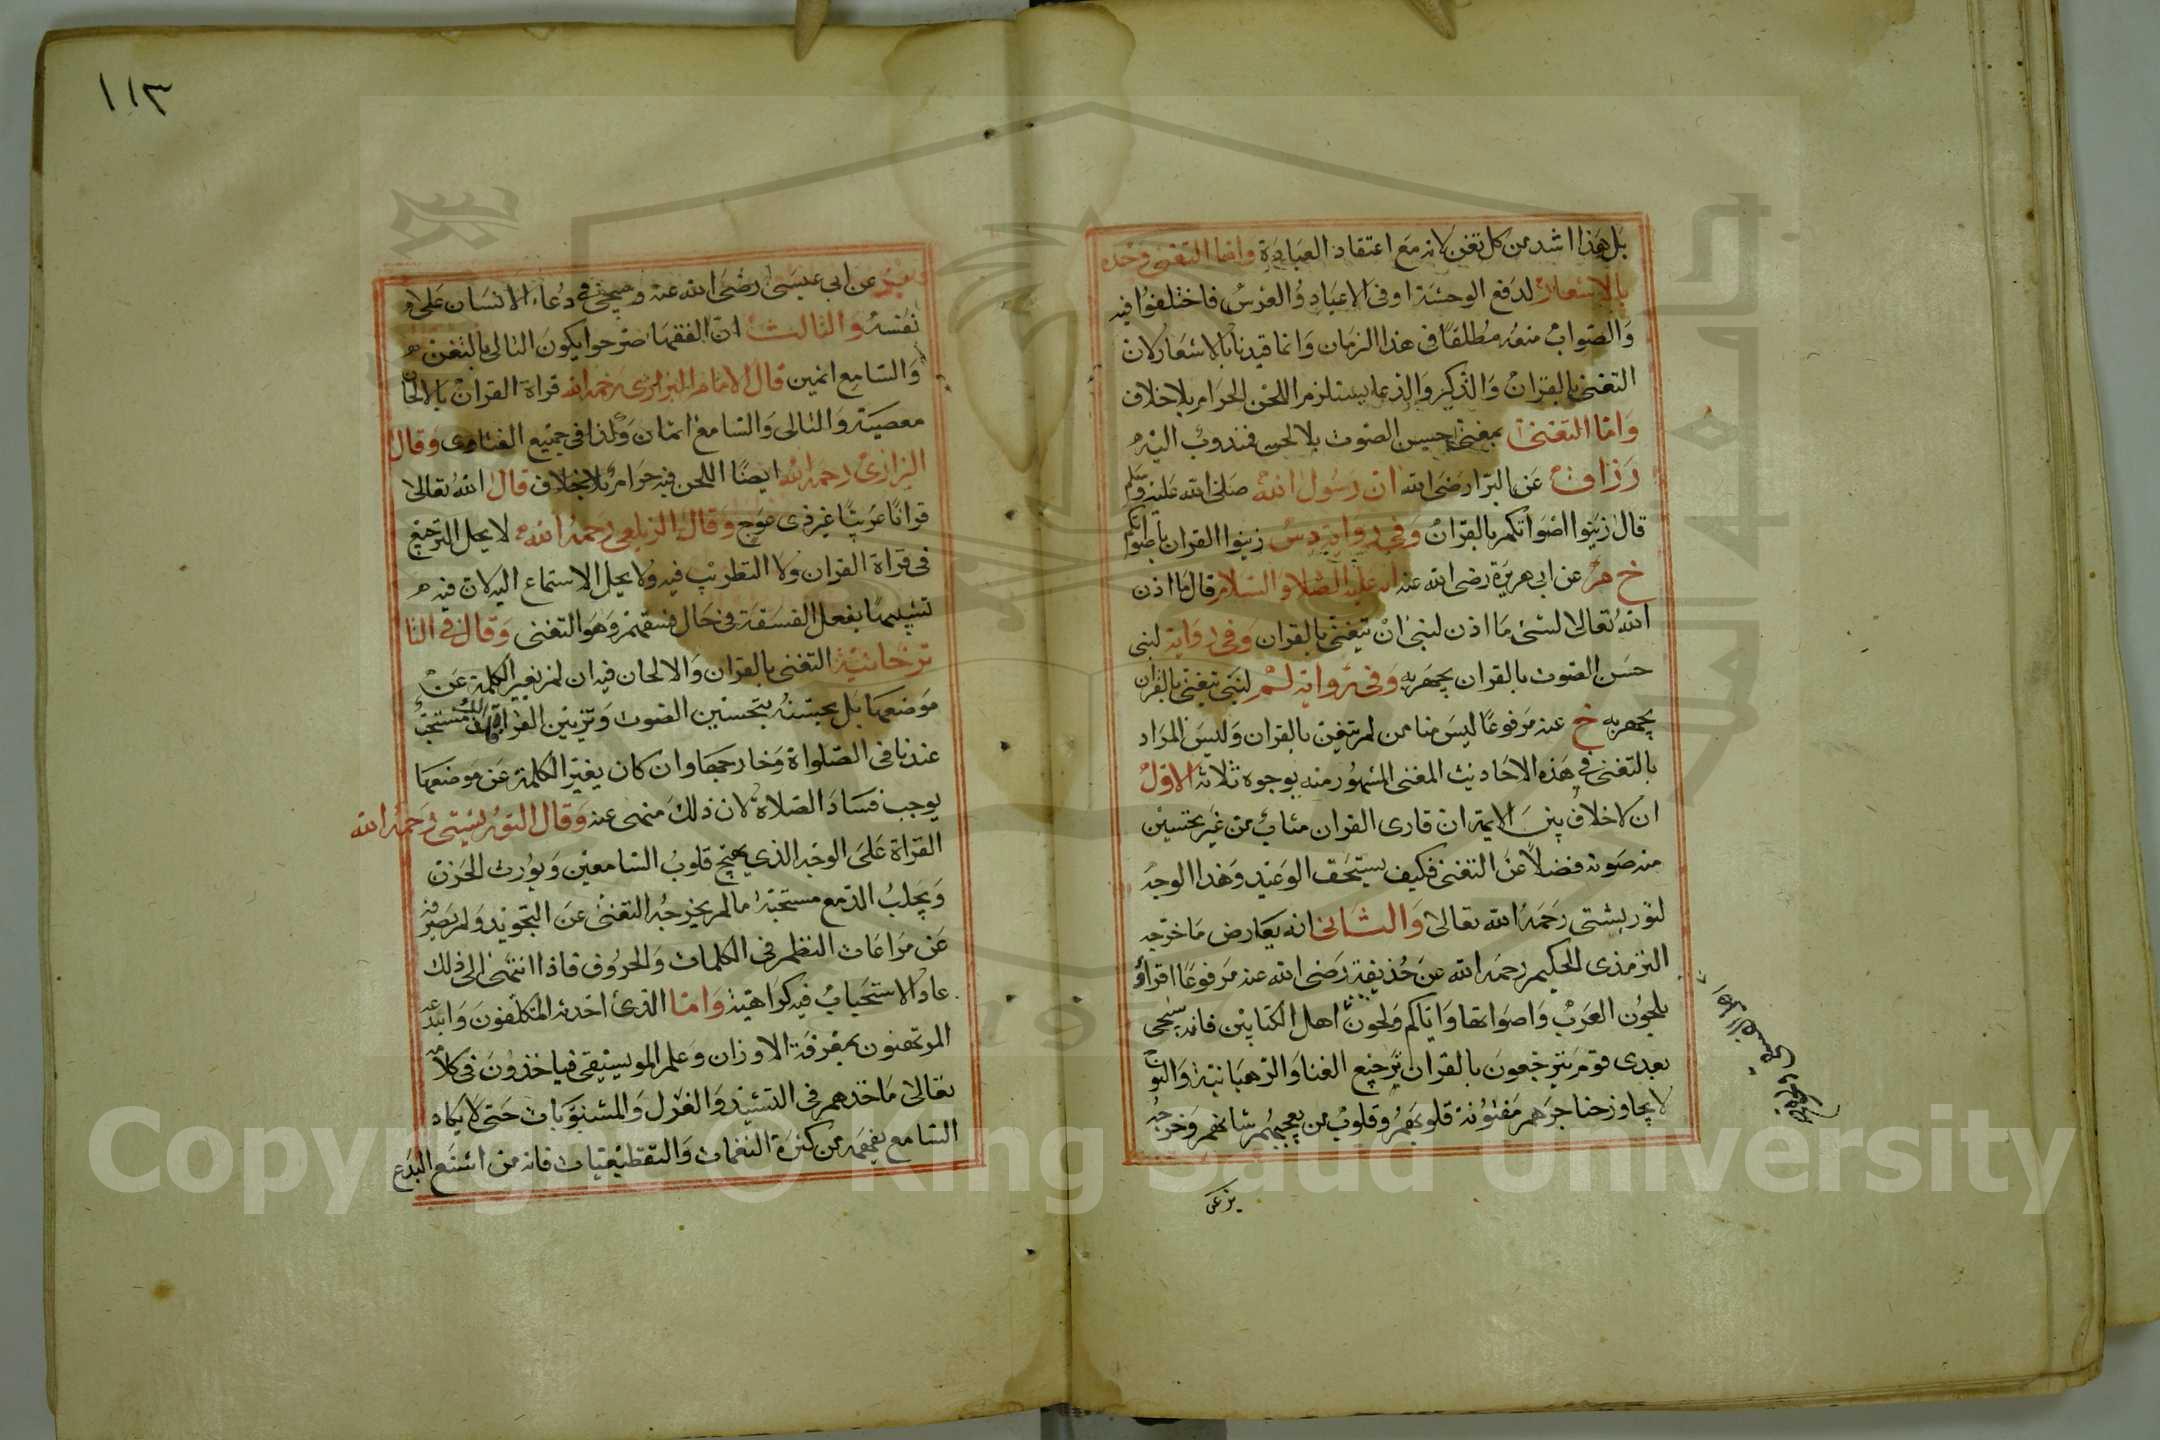 بل هذا اشد من كل تغن لانه مع اعتقاد العبادة واما التغنى وحده
بالاشعار لدفع الوحشة او فى الاعياد والعرس فاختلفوا فيه
والصواب منعه مطلقا فى هذا الزمان وانما قيدنا بالاشعار لان
التغنى بالقران والذكر والدعا يستلزم اللحن الحرام بلا خلاف
واما التغنى بمعنى حسن الصوت بلا لحن فمندوب اليه
عن البرا رضى الله ان رسول الله صلى الله عليه وسلم
قال زينوا اصواتكم بالقران وفى رواية دس زينوا القران باصواتكم
خ م عن ابى هريرة رضى الله عنه انه عليه الصلاة والسلام قال ما اذن
الله تعالى لشئ ما اذن لنبى ان يتغنى بالقران وفى رواية لنبى
حسن الصوت بالقران يجهر به وفى رواية لنبى يتغنى بالقران
يجهر به خ عنه مرفوعا ليس منا من لم يتغن بالقران وليس المراد
بالتغنى فى هذه الاحاديث المعنى المشهور منه بوجوه ثلاثة الاول
ان لا خلاف بين الايمة ان قارى القران مثاب من غير تحسين
منه صوته فضلا عن التغنى فكيف يستحق الوعيد وهذا الوجه
لتوربشتى رحمه الله تعالى والثانى انه يعارض ما خرجه
الترمذى الحكيم رحمه الله عن حذيفة رضى الله عنه مرفوعا اقرأوا
بلحون العرب واصواتها واياكم ولحون اهل الكتابين فانه سيجى
بعدى قوم يترجعون بالقران ترجيع الغنا والرهبانية والنوح
لا يجاوز حناجرهم مفتونة قلوبهم وقلوب من يعجبهم شانهم وخرجه
١١٣
عن ابى عيسى رضى الله عنه وصحيح فى دعاء الانسان على
نفسه والثالث ان الفقها صرحوا بكون التالى بالتغنى
والسامع اثمين قال الامام البزازى رحمه الله قراة القران بالالحان
معصية والتالى والسامع اثمان وكذا فى جميع الفتاوى وقال
البزازى رحمه الله ايضا اللحن فيه حرام بلا خلاف قال الله تعالى
قرانا عربيا غير ذى عوج وقال الزيلعى رحمه الله لا يحل الترجيع
فى قراة القران ولا التطريب فيه ولا يحل الاستماع اليه لان فيه
تشبيها بفعل الفسقة فى حال فسقهم وهو التغنى وقال فى التا
ترخانية التغنى بالقران والالحان فيه ان لم يغير الكلمة عن
موضعها بل يحسنه بتحسين الصوت وتزيين القراة فذلك مستحب
عندنا فى الصلواة وخارجها وان كان يغير الكلمة عن موضعها
يوجب فساد الصلاة لان ذلك منهى عنه وقال التوربشتى رحمه الله
القراة على الوجه الذى يهيج قلوب السامعين ويورث الحزن
ويجلب الدمع مستحبة ما لم يخرجه التغنى عن التجويد ولم يصرفه
عن مراعات النظم فى الكلمات والحروف فاذا انتهى الى ذلك
عاد الاستحباب فيه كراهية واما الذى احدثه المتكلفون وابتدعه
المرتهنون بمعرفة الاوزان وعلم الموسيقى فياخذون فى كلامه
تعالى ماخذهم فى التشيد والغزل والمثنويات حتى لا يكاد
السامع يفهمه من كثرة النغمات والتقطيعيات فانه من اشنع البدع